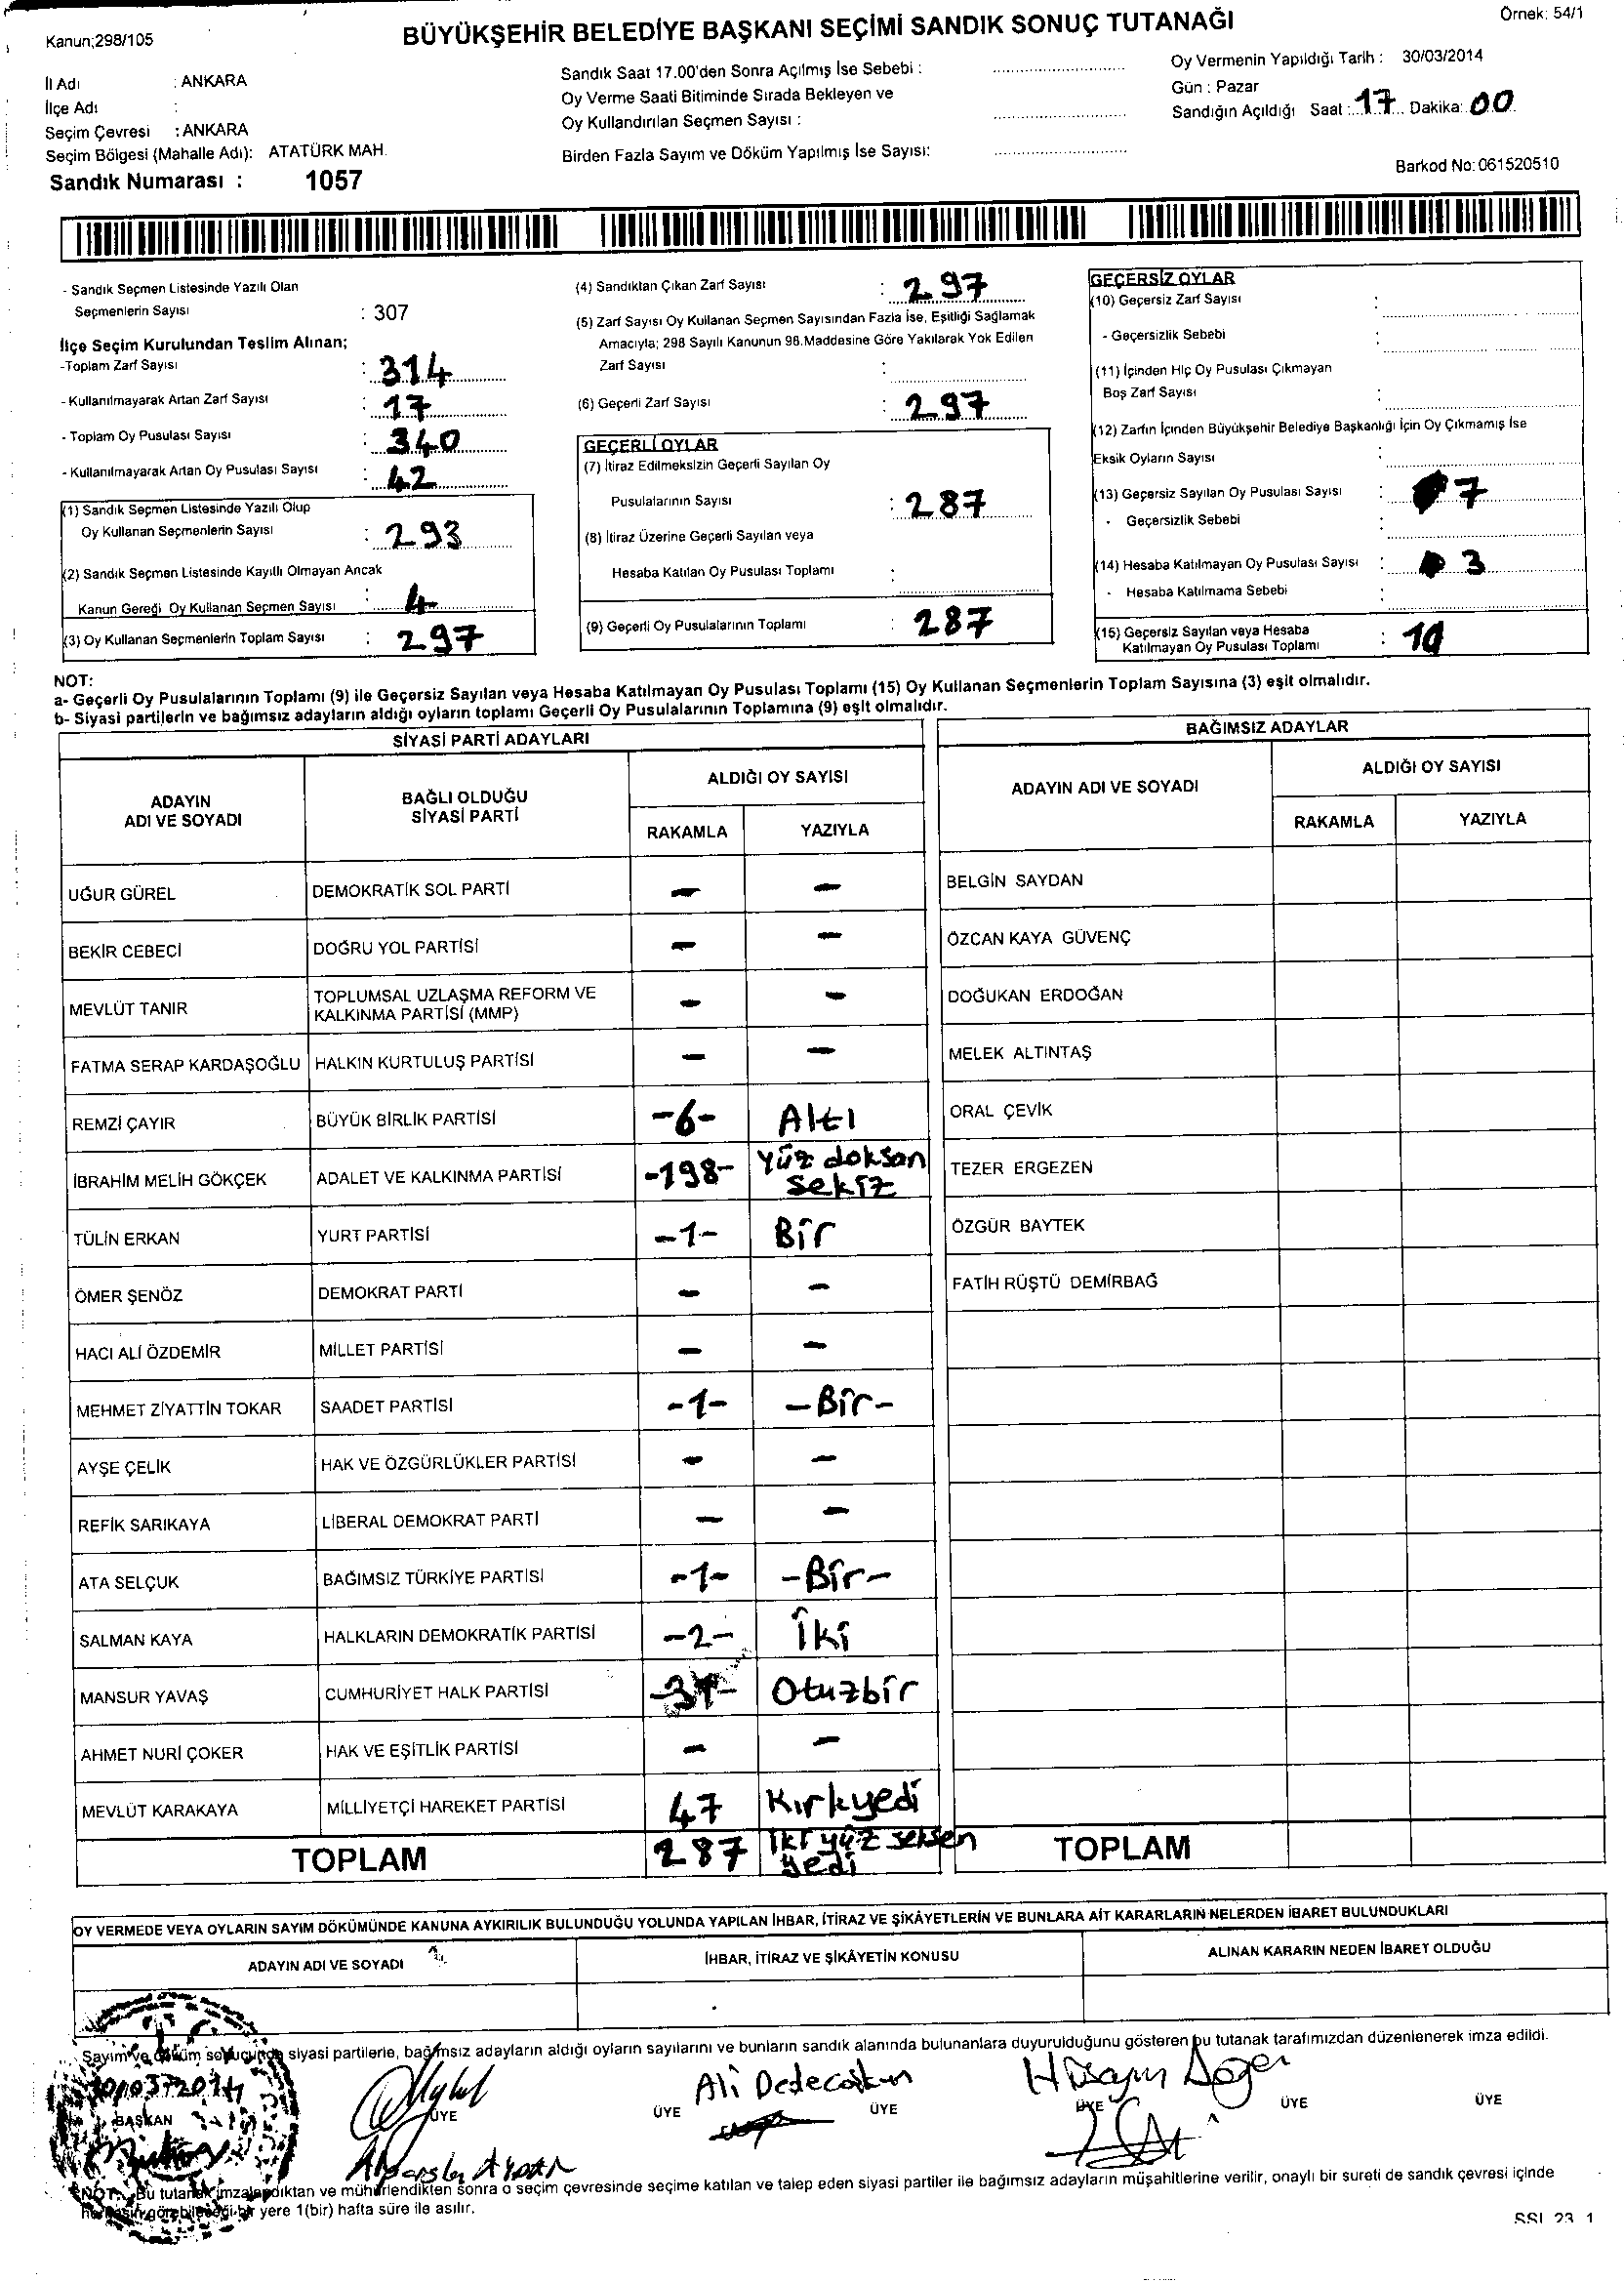 Kanun;298/105
BÜYÜKŞEHİR BELEDİYE BAŞKANI SEÇİMİ SANDIK SONUÇ TUTANAĞI
Örnek: 54/1
İl Adı : ANKARA
İlçe Adı :
Seçim Çevresi : ANKARA
Seçim Bölgesi (Mahalle Adı): ATATÜRK MAH.
Sandık Numarası : 1057
Sandık Saat 17.00'den Sonra Açılmış İse Sebebi :
Oy Verme Saati Bitiminde Sırada Bekleyen ve
Oy Kullandırılan Seçmen Sayısı :
Birden Fazla Sayım ve Döküm Yapılmış İse Sayısı:
Oy Vermenin Yapıldığı Tarih : 30/03/2014
Gün : Pazar
Sandığın Açıldığı Saat : 17 Dakika: 00
Barkod No: 061520510
- Sandık Seçmen Listesinde Yazılı Olan
Seçmenlerin Sayısı : 307
İlçe Seçim Kurulundan Teslim Alınan;
-Toplam Zarf Sayısı : 314
- Kullanılmayarak Artan Zarf Sayısı : 17
- Toplam Oy Pusulası Sayısı : 340
- Kullanılmayarak Artan Oy Pusulası Sayısı : 42
(1) Sandık Seçmen Listesinde Yazılı Olup
Oy Kullanan Seçmenlerin Sayısı : 293
(2) Sandık Seçmen Listesinde Kayıtlı Olmayan Ancak
Kanun Gereği Oy Kullanan Seçmen Sayısı : 4
(3) Oy Kullanan Seçmenlerin Toplam Sayısı : 297
(4) Sandıktan Çıkan Zarf Sayısı : 297
(5) Zarf Sayısı Oy Kullanan Seçmen Sayısından Fazla İse, Eşitliği Sağlamak
Amacıyla; 298 Sayılı Kanunun 98.Maddesine Göre Yakılarak Yok Edilen
Zarf Sayısı :
(6) Geçerli Zarf Sayısı : 297
GEÇERLİ OYLAR
(7) İtiraz Edilmeksizin Geçerli Sayılan Oy
Pusulalarının Sayısı : 287
(8) İtiraz Üzerine Geçerli Sayılan veya
Hesaba Katılan Oy Pusulası Toplamı :
(9) Geçerli Oy Pusulalarının Toplamı : 287
GEÇERSİZ OYLAR
(10) Geçersiz Zarf Sayısı :
- Geçersizlik Sebebi :
(11) İçinden Hiç Oy Pusulası Çıkmayan
Boş Zarf Sayısı :
(12) Zarfın İçinden Büyükşehir Belediye Başkanlığı İçin Oy Çıkmamış İse
Eksik Oyların Sayısı :
(13) Geçersiz Sayılan Oy Pusulası Sayısı : 7
- Geçersizlik Sebebi :
(14) Hesaba Katılmayan Oy Pusulası Sayısı : 3
- Hesaba Katılmama Sebebi :
(15) Geçersiz Sayılan veya Hesaba
Katılmayan Oy Pusulası Toplamı : 10
NOT:
a- Geçerli Oy Pusulalarının Toplamı (9) ile Geçersiz Sayılan veya Hesaba Katılmayan Oy Pusulası Toplamı (15) Oy Kullanan Seçmenlerin Toplam Sayısına (3) eşit olmalıdır.
b- Siyasi partilerin ve bağımsız adayların aldığı oyların toplamı Geçerli Oy Pusulalarının Toplamına (9) eşit olmalıdır.
SİYASİ PARTİ ADAYLARI
ADAYIN ADI VE SOYADI BAĞLI OLDUĞU SİYASİ PARTİ ALDIĞI OY SAYISI
RAKAMLA YAZIYLA
UĞUR GÜREL DEMOKRATİK SOL PARTİ - -
BEKİR CEBECİ DOĞRU YOL PARTİSİ - -
MEVLÜT TANIR TOPLUMSAL UZLAŞMA REFORM VE KALKINMA PARTİSİ (MMP) - -
FATMA SERAP KARDAŞOĞLU HALKIN KURTULUŞ PARTİSİ - -
REMZİ ÇAYIR BÜYÜK BİRLİK PARTİSİ -6- Altı
İBRAHİM MELİH GÖKÇEK ADALET VE KALKINMA PARTİSİ -198- Yüz doksan sekiz
TÜLİN ERKAN YURT PARTİSİ -1- Bir
ÖMER ŞENÖZ DEMOKRAT PARTİ - -
HACI ALİ ÖZDEMİR MİLLET PARTİSİ - -
MEHMET ZİYATTİN TOKAR SAADET PARTİSİ -1- -Bir-
AYŞE ÇELİK HAK VE ÖZGÜRLÜKLER PARTİSİ - -
REFİK SARIKAYA LİBERAL DEMOKRAT PARTİ - -
ATA SELÇUK BAĞIMSIZ TÜRKİYE PARTİSİ -1- -Bir-
SALMAN KAYA HALKLARIN DEMOKRATİK PARTİSİ -2- İki
MANSUR YAVAŞ CUMHURİYET HALK PARTİSİ -31- Otuzbir
AHMET NURİ ÇOKER HAK VE EŞİTLİK PARTİSİ - -
MEVLÜT KARAKAYA MİLLİYETÇİ HAREKET PARTİSİ 47 Kırkyedi
TOPLAM 287 İki yüz seksen yedi
BAĞIMSIZ ADAYLAR
ADAYIN ADI VE SOYADI ALDIĞI OY SAYISI
RAKAMLA YAZIYLA
BELGİN SAYDAN
ÖZCAN KAYA GÜVENÇ
DOĞUKAN ERDOĞAN
MELEK ALTINTAŞ
ORAL ÇEVİK
TEZER ERGEZEN
ÖZGÜR BAYTEK
FATİH RÜŞTÜ DEMİRBAĞ
TOPLAM
OY VERMEDE VEYA OYLARIN SAYIM DÖKÜMÜNDE KANUNA AYKIRILIK BULUNDUĞU YOLUNDA YAPILAN İHBAR, İTİRAZ VE ŞİKÂYETLERİN VE BUNLARA AİT KARARLARIN NELERDEN İBARET BULUNDUKLARI
ADAYIN ADI VE SOYADI İHBAR, İTİRAZ VE ŞİKÂYETİN KONUSU ALINAN KARARIN NEDEN İBARET OLDUĞU
Sayım ve döküm sonucunda siyasi partilerle, bağımsız adayların aldığı oyların sayılarını ve bunların sandık alanında bulunanlara duyurulduğunu gösteren bu tutanak tarafımızdan düzenlenerek imza edildi.
BAŞKAN ÜYE ÜYE ÜYE ÜYE ÜYE ÜYE
Ali
NOT: Bu tutanak imzalandıktan ve mühürlendikten sonra o seçim çevresinde seçime katılan ve talep eden siyasi partiler ile bağımsız adayların müşahitlerine verilir, onaylı bir sureti de sandık çevresi içinde
herkesin görebileceği bir yere 1(bir) hafta süre ile asılır.